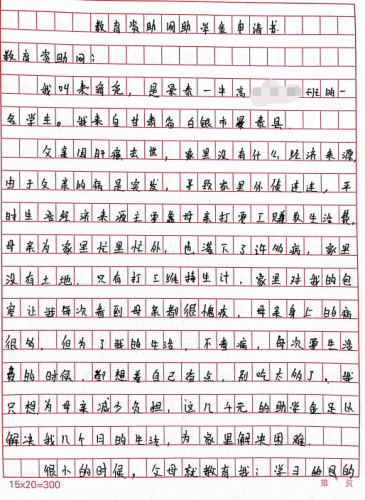 教育资助网助学金申请书
教育资助网：
我叫来 ，是景泰一中高 班的一
名学生。我来自甘肃省白银市景泰县
父亲因肝病去世，家里没有什么经济来源，
由于父亲的病是突发，导致家里外债连连，平
时生活经济来源主要靠母亲打零工赚取生活费，
母亲为家里忙里忙外，也落下了许多病，家里
没有土地，只有打工维持生计，家里对我的包
容让我每次看到母亲都很愧疚，母亲身上的病
很多，但为了我的生活，不看病，每次要生活
费的时候，都想着自己省点，别吃太多了。我
只想为母亲减少负担，这几千元的助学金足以
解决我几个月的生活，为家里解决困难.
很小的时候，父母就教育我：学习的目的
15x20=300
第 页